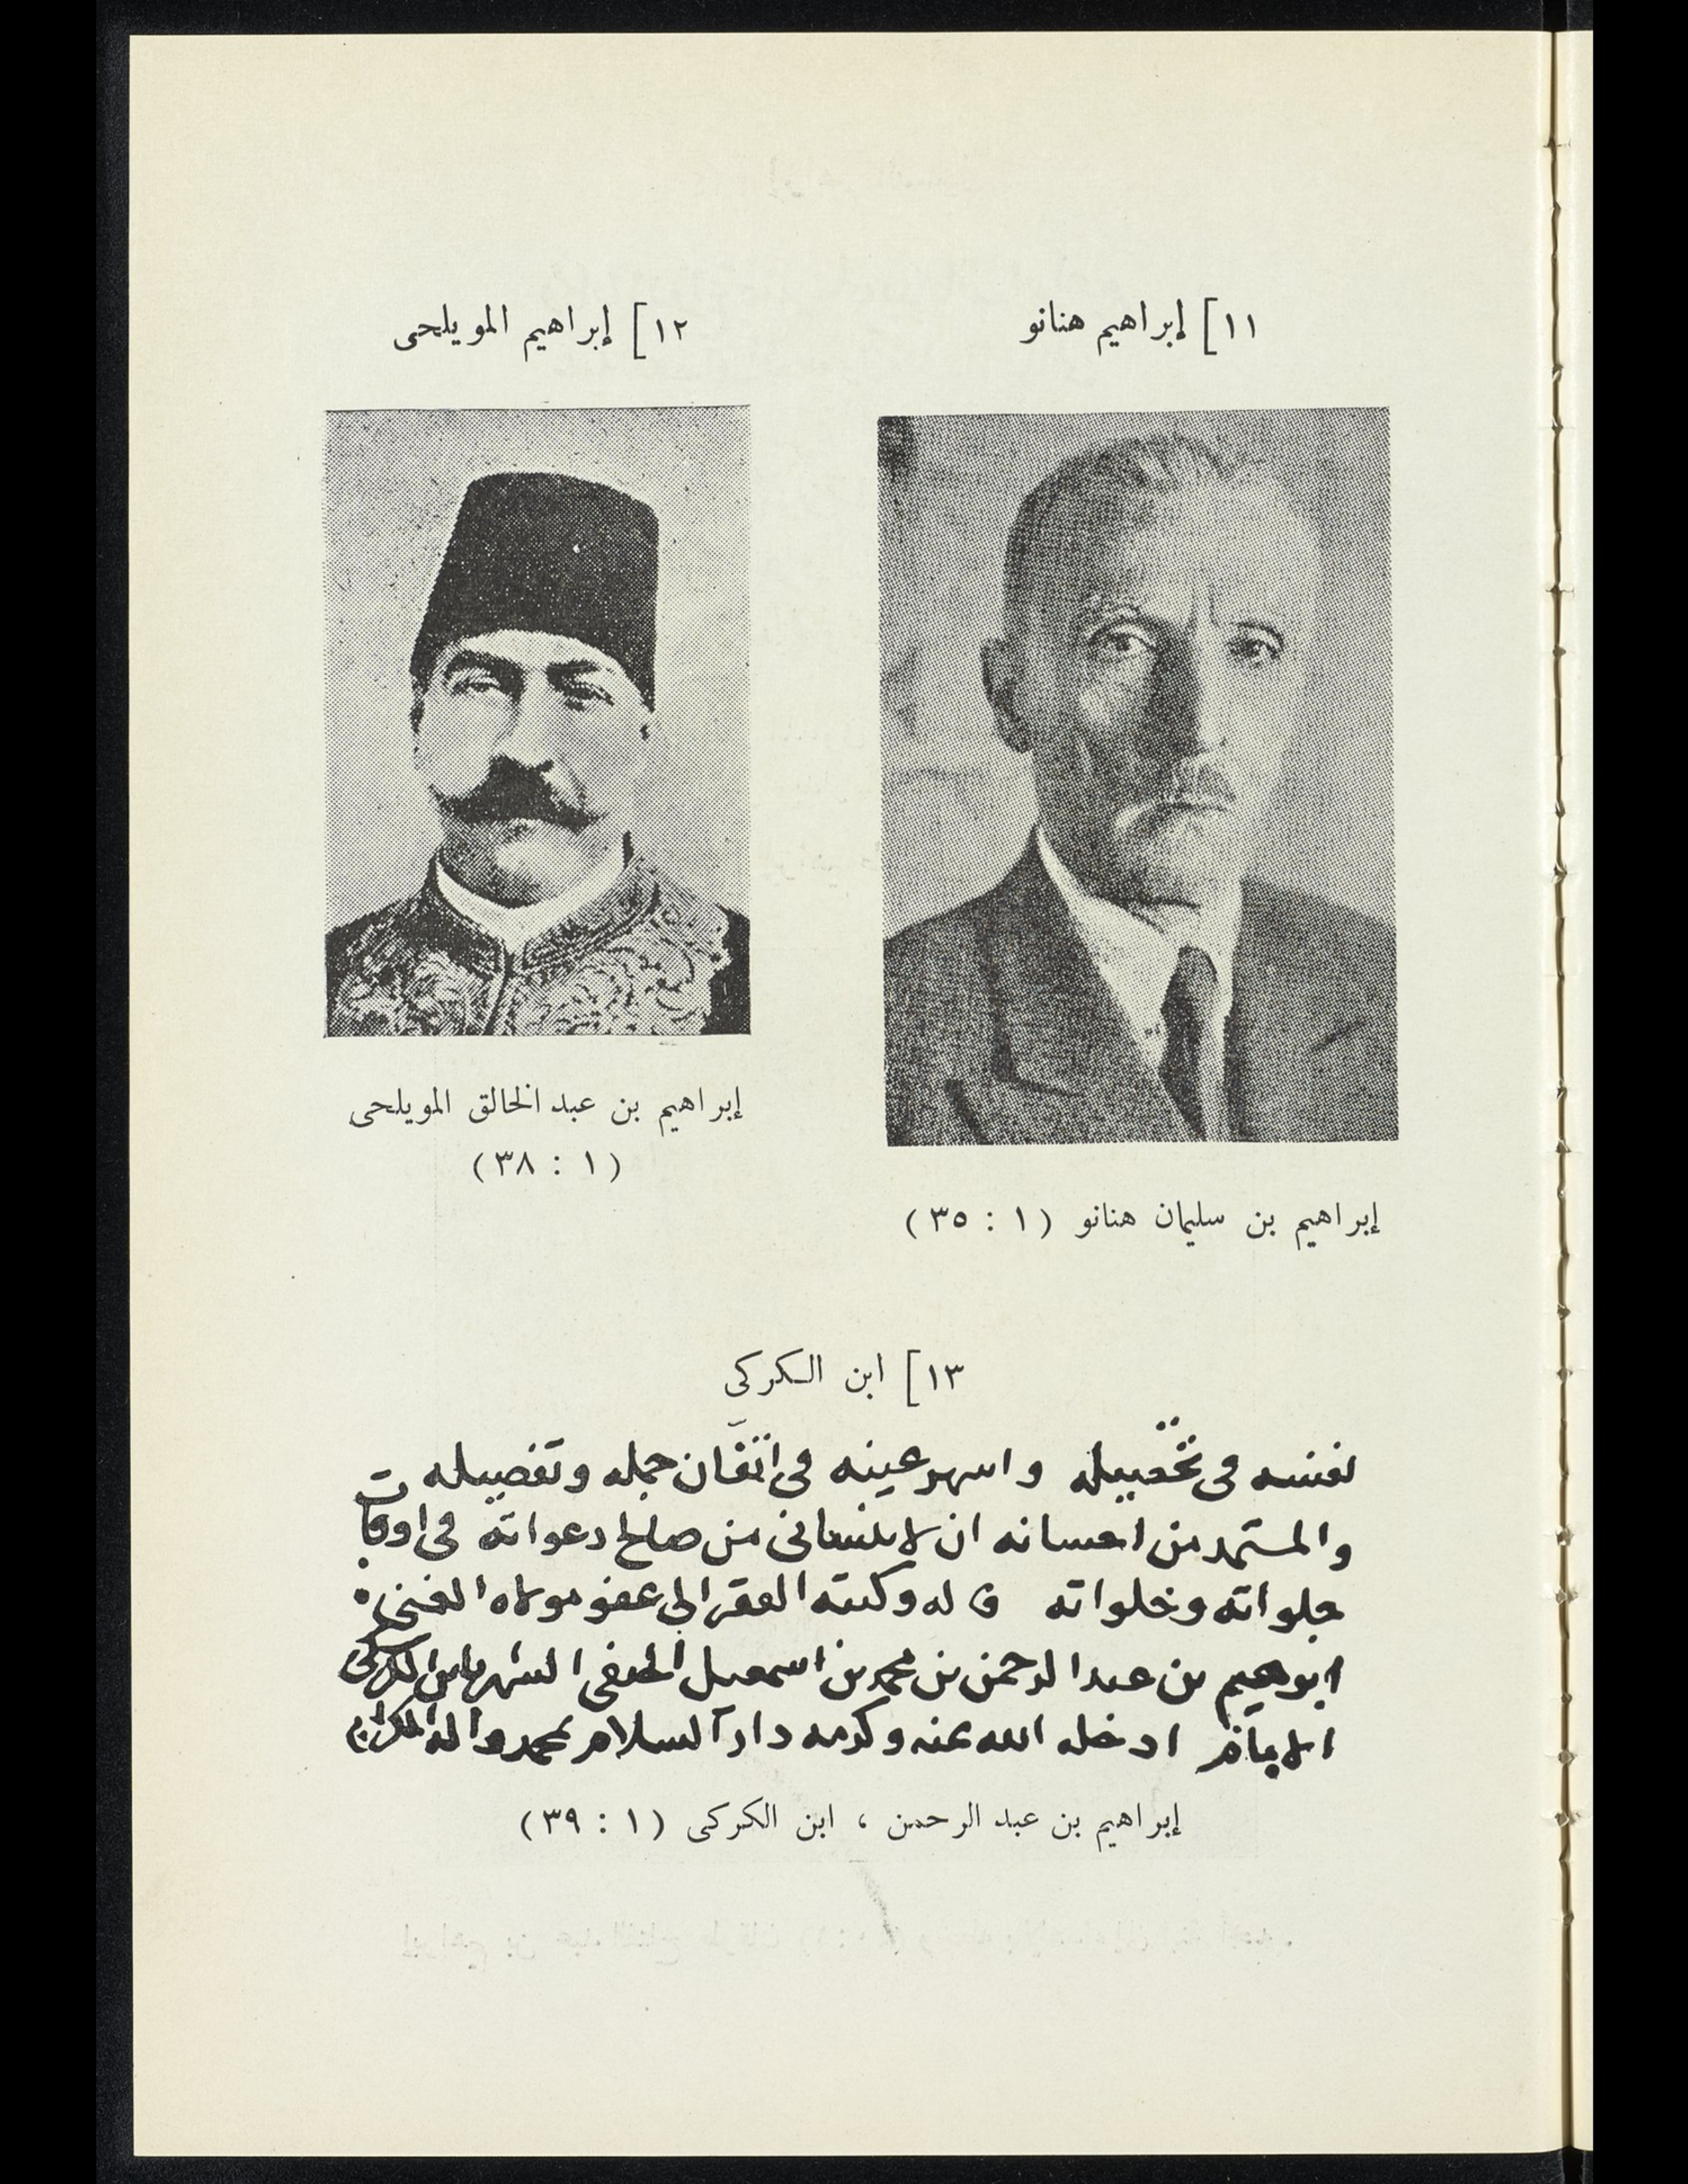 ١١] إبراهيم هنانو
١٢] إبراهيم المويلحى
إبراهيم بن سليمان هنانو (١ : ٣٥)
إبراهيم بن عبد الخالق المويلحى
(١ : ٣٨)
١٣] ابن الكركى
نفسه فى تحصيله واسهر عينه فى اتقان جمله وتفصيله
والمستمد من احسانه ان لا ينسانى من صالح دعواته فى اوقات
جلواته وخلواته له وكتبه الفقير الى عفو مولاه الغنى
ابرهيم بن عبد الرحمن بن محمد بن اسمعيل الحنفى الشهير بابن الكركى
ادخله الله بمنه وكرمه دار السلام بمحمد واله
إبراهيم بن عبد الرحمن ، ابن الكركى (١ : ٣٩)